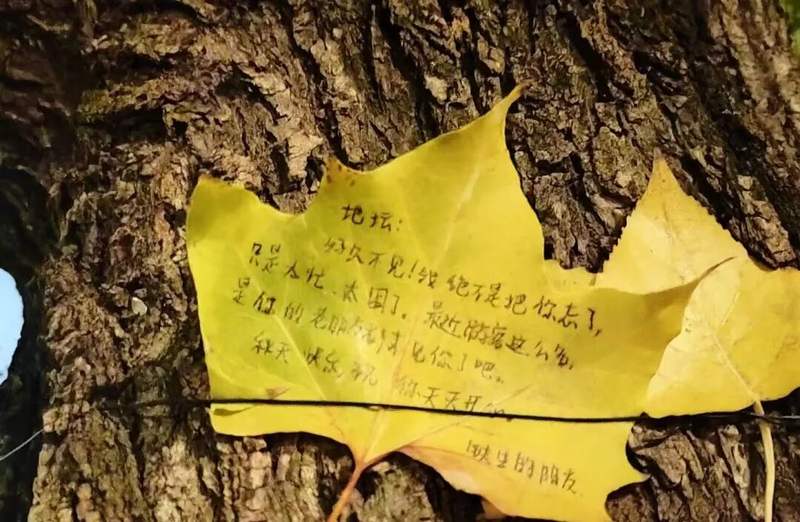 地坛：
好久不见！我绝不是把你忘了，
只是太忙、太困了。最近游客这么多，
是你的老朋友们来见你了吧。
秋天快乐，祝你天天开心。
铁生的朋友